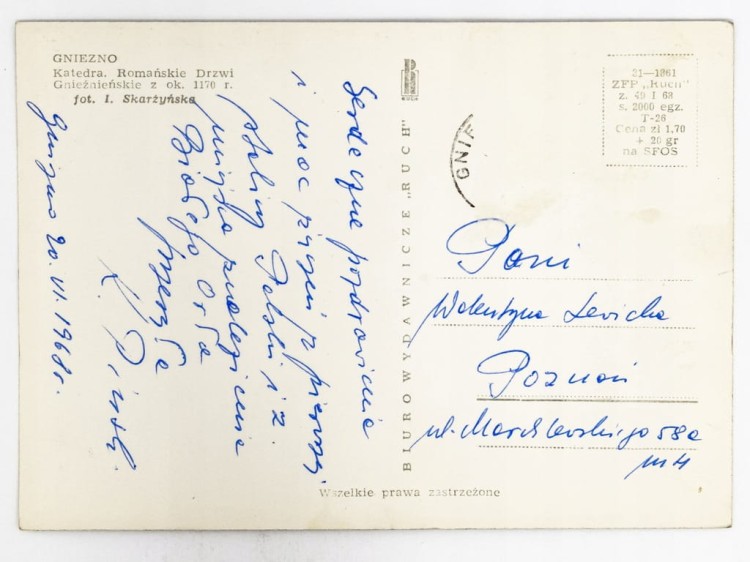 GNIEZNO
Katedra. Romańskie Drzwi
Gnieźnieńskie z ok. 1170 r.
fot. I. Skarżyńska
Serdeczne pozdrowienia
i moc życzeń z pierwszej
stolicy Polski i z
miejsca znalezienia
Białego Orła
przesyła
K.
Gniezno 20.VI.1968r.
BIURO WYDAWNICZE „RUCH"
GNIE
21—1861
ZFP „Ruch"
z. 49 I 68
s. 2000 egz.
T-26
Cena zł 1,70
+ 20 gr
na SFOS
Pani
Walentyna Lewicka
Poznań
ul. Marchlewskiego 58a
m 4
Wszelkie prawa zastrzeżone